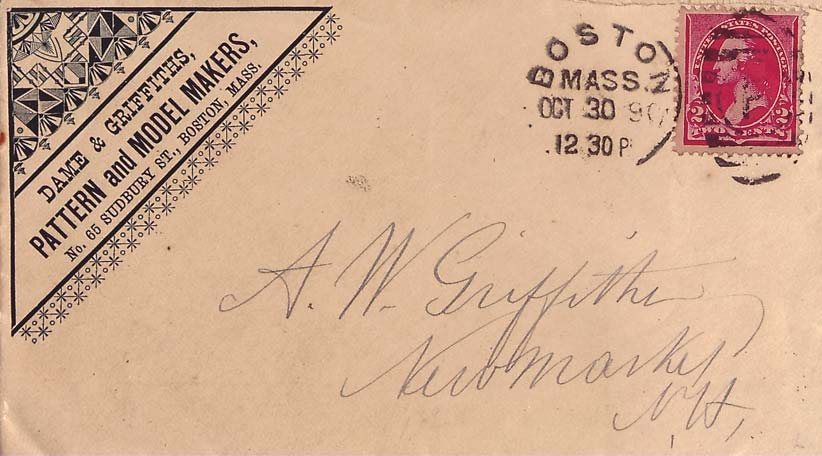 DAME & GRIFFITHS,
PATTERN and MODEL MAKERS,
No. 65 SUDBURY ST., BOSTON, MASS.
BOSTON
MASS.
OCT 30 90
12 30 P
UNITED STATES POSTAGE
2 2
TWO CENTS
A. W. Griffiths
Newmarket
N.H.